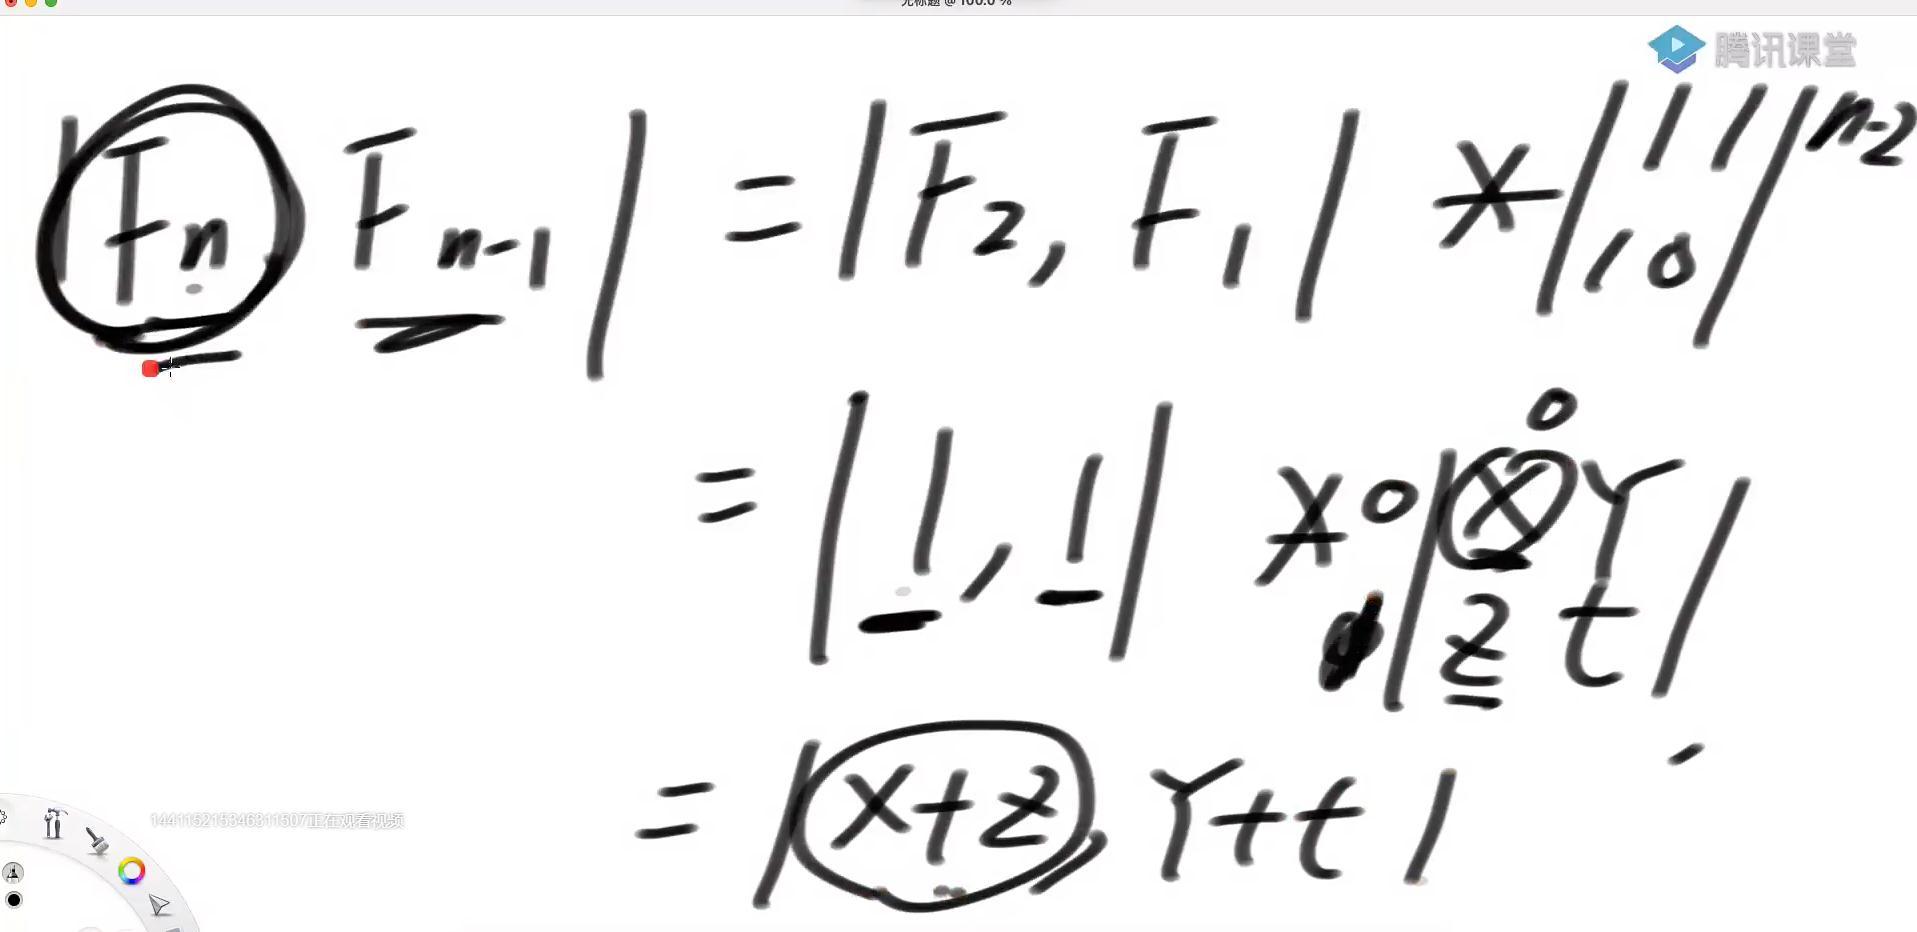 无标题 @ 100.0 %
腾讯课堂
|Fn Fn-1| = |F2, F1| * |1 1 / 1 0|^n-2
= |1, 1| * |X Y / Z t|
0
0
= |X+Z, Y+t|
144115215346311507正在观看视频